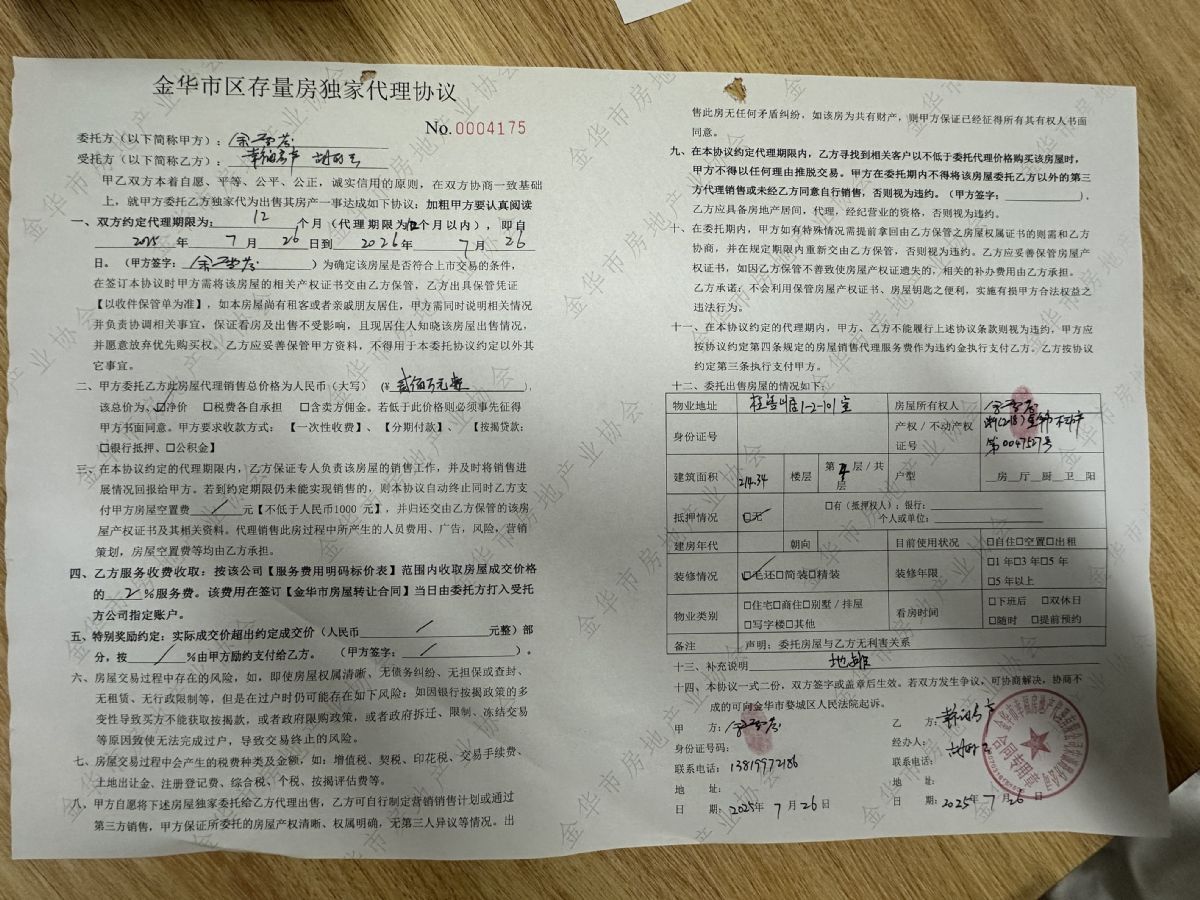 金华市区存量房独家代理协议
No.0004175
委托方（以下简称甲方）：
受托方（以下简称乙方）：幸福房产
甲乙双方本着自愿、平等、公平、公正，诚实信用的原则，在双方协商一致基础
上，就甲方委托乙方独家代为出售其房产一事达成如下协议：加粗甲方要认真阅读
一、双方约定代理期限为： 12 个月（代理期限为12个月以内），即自
2025 年 7 月 26 日到 2026年 7 月 26
日。（甲方签字： ）为确定该房屋是否符合上市交易的条件，
在签订本协议时甲方需将该房屋的相关产权证书交由乙方保管，乙方出具保管凭证
【以收件保管单为准】，如本房屋尚有租客或者亲戚朋友居住，甲方需同时说明相关情况
并负责协调相关事宜，保证看房及出售不受影响，且现居住人知晓该房屋出售情况，
并愿意放弃优先购买权。乙方应妥善保管甲方资料，不得用于本委托协议约定以外其
它事宜。
二、甲方委托乙方此房屋代理销售总价格为人民币（大写）（¥ 贰佰万元整 ），
该总价为、☑净价 □税费各自承担 □含卖方佣金。若低于此价格则必须事先征得
甲方书面同意。甲方要求收款方式：【一次性收费】、【分期付款】、【按揭贷款；
□银行抵押、□公积金】
三、在本协议约定的代理期限内，乙方保证专人负责该房屋的销售工作，并及时将销售进
展情况回报给甲方。若到约定期限仍未能实现销售的，则本协议自动终止同时乙方支
付甲方房屋空置费 / 元【不低于人民币1000 元】，并归还交由乙方保管的该房
屋产权证书及其相关资料。代理销售此房过程中所产生的人员费用、广告，风险，营销
策划，房屋空置费等均由乙方承担。
四、乙方服务收费收取：按该公司【服务费用明码标价表】范围内收取房屋成交价格
的 2 %服务费。该费用在签订【金华市房屋转让合同】当日由委托方打入受托
方公司指定账户。
五、特别奖励约定：实际成交价超出约定成交价（人民币 / 元整）部
分，按 / %由甲方励约支付给乙方。（甲方签字： / ）。
六、房屋交易过程中存在的风险，如，即使房屋权属清晰、无债务纠纷、无担保或查封、
无租赁、无行政限制等，但是在过户时仍可能存在如下风险：如因银行按揭政策的多
变性导致买方不能获取按揭款，或者政府限购政策，或者政府拆迁、限制、冻结交易
等原因致使无法完成过户，导致交易终止的风险。
七、房屋交易过程中会产生的税费种类及金额，如：增值税、契税、印花税、交易手续费、
土地出让金、注册登记费、综合税、个税、按揭评估费等。
八、甲方自愿将下述房屋独家委托给乙方代理出售，乙方可自行制定营销销售计划或通过
第三方销售，甲方保证所委托的房屋产权清晰、权属明确，无第三人异议等情况。出
售此房无任何矛盾纠纷，如该房为共有财产，则甲方保证已经征得所有其有权人书面
同意。
九、在本协议约定代理期限内，乙方寻找到相关客户以不低于委托代理价格购买该房屋时，
甲方不得以任何理由推脱交易。甲方在委托期内不得将该房屋委托乙方以外的第三
方代理销售或未经乙方同意自行销售，否则视为违约。（甲方签字： ）。
乙方应具备房地产居间，代理，经纪营业的资格，否则视为违约。
十、在委托期内，甲方如有特殊情况需提前拿回由乙方保管之房屋权属证书的则需和乙方
协商，并在规定期限内重新交由乙方保管，否则视为违约。乙方应妥善保管房屋产
权证书，如因乙方保管不善致使房屋产权证遗失的，相关的补办费用由乙方承担。
乙方承诺：不会利用保管房屋产权证书、房屋钥匙之便利，实施有损甲方合法权益之
违法行为。
十一、在本协议约定的代理期内，甲方、乙方不能履行上述协议条款则视为违约，甲方应
按协议约定第四条规定的房屋销售代理服务费作为违约金执行支付乙方。乙方按协议
约定第三条执行支付甲方。
十二、委托出售房屋的情况如下：
物业地址 1-2-101室 房屋所有权人
身份证号 产权 / 不动产权证号 第0047527号
建筑面积 214.34 楼层 第 层 / 共 层 户型 房 厅 厨 卫 阳
抵押情况 ☑无 □有（抵押权人）；银行：
个人或单位：
建房年代 朝向 目前使用状况 □自住□空置□出租
装修情况 ☑毛坯□简装□精装 装修年限 □1 年□3 年□5 年
□5 年以上
物业类别 □住宅□商住□别墅 / 排屋 □写字楼□其他 看房时间 □下班后 □双休日
□随时 □提前预约
备注 声明：委托房屋与乙方无利害关系
十三、补充说明 地址
十四、本协议一式二份，双方签字或盖章后生效。若双方发生争议，可协商解决，协商不
成的可向金华市婺城区人民法院起诉。
甲 方： 乙 方：幸福房产
身份证号码： 经办人：
联系电话：13819972186 联系电话：
地 址： 地 址：
日 期：2025年 7 月 26 日 日 期：2025年 7 月 26 日
合同专用章
金华市房地产业协会